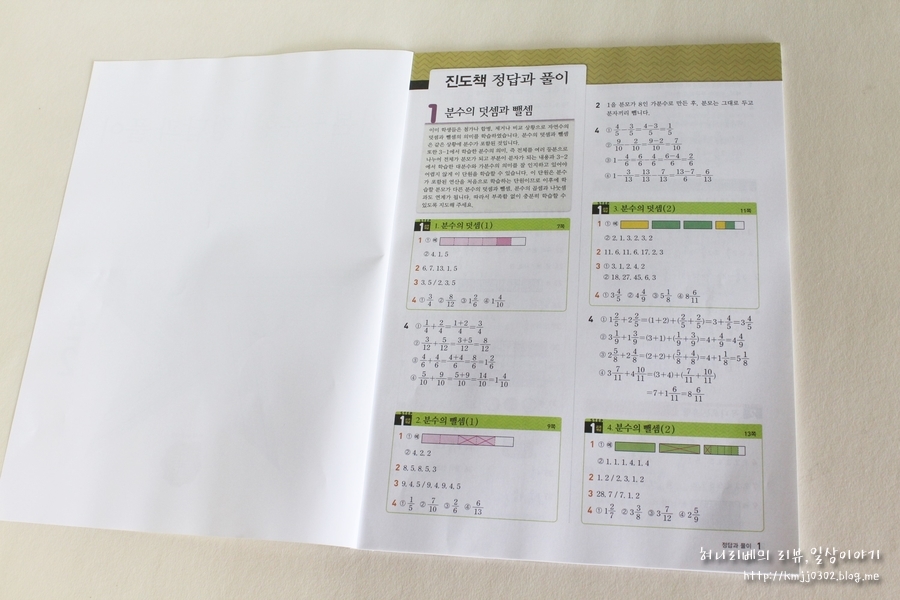 진도책 정답과 풀이
1 분수의 덧셈과 뺄셈
1 1. 분수의 덧셈(1) 7쪽
1 ① 예
② 4, 1, 5
2 6, 7, 13, 1, 5
3 3, 5 / 2, 3, 5
4 ① 3/4 ② 8/12 ③ 1 2/6 ④ 1 4/10
4 ① 1/4 + 2/4 = 1+2/4 = 3/4
② 3/12 + 5/12 = 3+5/12 = 8/12
③ 4/6 + 4/6 = 4+4/6 = 8/6 = 1 2/6
④ 5/10 + 9/10 = 5+9/10 = 14/10 = 1 4/10
1 2. 분수의 뺄셈(1) 9쪽
1 ① 예
② 4, 2, 2
2 8, 5, 8, 5, 3
3 9, 4, 5 / 9, 4, 9, 4, 5
4 ① 1/5 ② 7/10 ③ 2/6 ④ 6/13
2 1을 분모가 8인 가분수로 만든 후, 분모는 그대로 두고
분자끼리 뺍니다.
4 ① 4/5 - 3/5 = 4-3/5 = 1/5
② 9/10 - 2/10 = 9-2/10 = 7/10
③ 1 - 4/6 = 6/6 - 4/6 = 6-4/6 = 2/6
1 3. 분수의 덧셈(2) 11쪽
1 ① 예
② 2, 1, 3, 2, 3, 2
2 11, 6, 11, 6, 17, 2, 3
3 ① 3, 1, 2, 4, 2
② 18, 27, 45, 6, 3
4 ① 3 4/5 ② 4 4/9 ③ 5 1/8 ④ 8 6/11
4 ① 1 2/5 + 2 2/5 = (1+2) + (2/5 + 2/5) = 3 + 4/5 = 3 4/5
② 3 1/9 + 1 3/9 = (3+1) + (1/9 + 3/9) = 4 + 4/9 = 4 4/9
③ 2 5/8 + 2 4/8 = (2+2) + (5/8 + 4/8) = 4 + 1 1/8 = 5 1/8
④ 3 7/11 + 4 10/11 = (3+4) + (7/11 + 10/11)
= 7 + 1 6/11 = 8 6/11
1 4. 분수의 뺄셈(2) 13쪽
1 ① 예
② 1, 1, 1, 4, 1, 4
2 1, 2 / 2, 3, 1, 2
3 28, 7 / 7, 1, 2
4 ① 1 2/7 ② 3 3/8 ③ 3 7/12 ④ 2 5/9
정답과 풀이 1
허니리베의 리뷰.일상이야기
http://kmjj0302.blog.me